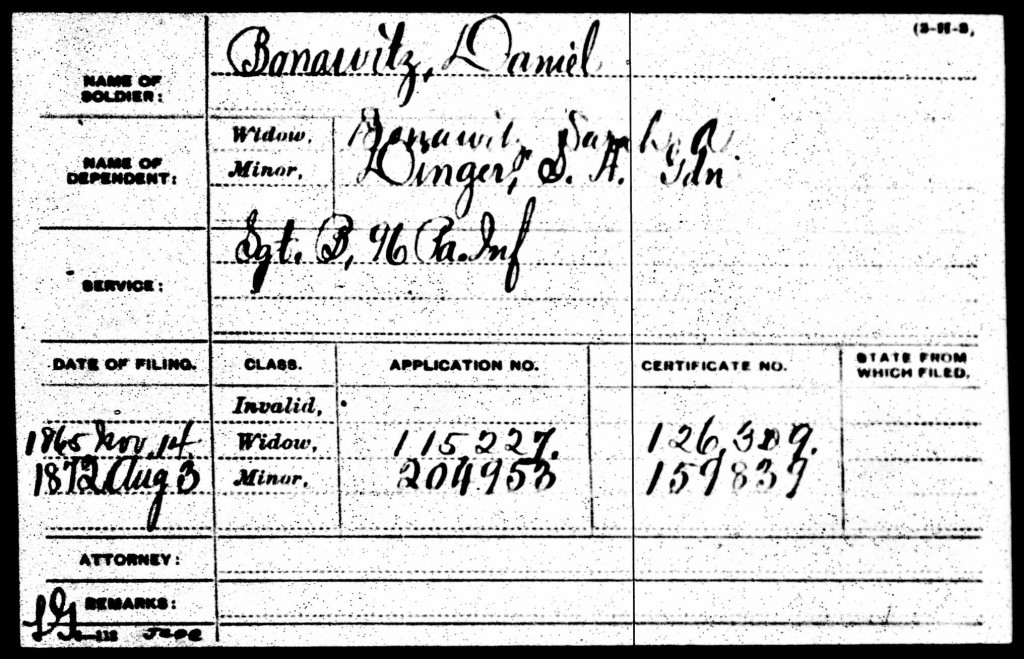 (3-H-3,
NAME OF SOLDIER: Bonawitz, Daniel
NAME OF DEPENDENT:
Widow, Bonawitz, Sarah A
Minor, Dinger, S. A. Gdn
SERVICE: Sgt. B, 96 Pa. Inf
DATE OF FILING. CLASS. APPLICATION NO. CERTIFICATE NO. STATE FROM WHICH FILED.
Invalid,
1865 Nov. 14. Widow, 115,227. 126,309.
1872 Aug 3 Minor. 204953 159839
ATTORNEY:
REMARKS: